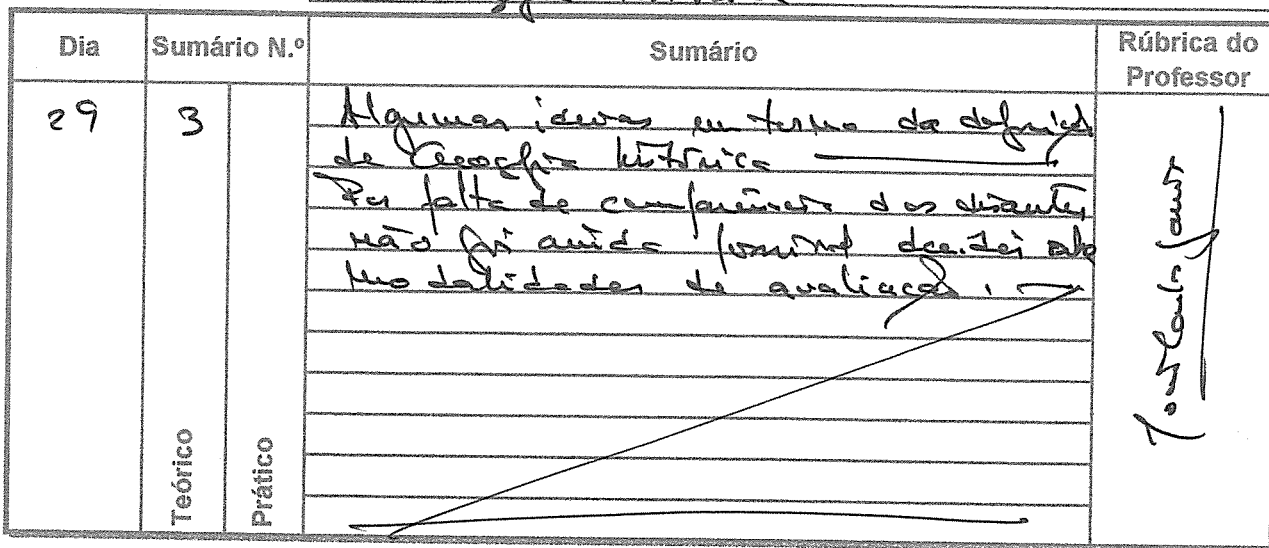 Dia Sumário N.º Sumário Rúbrica do Professor
29 3 Algumas ideias em torno da definição
de Geografia histórica
Por falta de comparência dos discentes
não foi ainda possível decidir sobre
modalidades de avaliação.
Teórico Prático